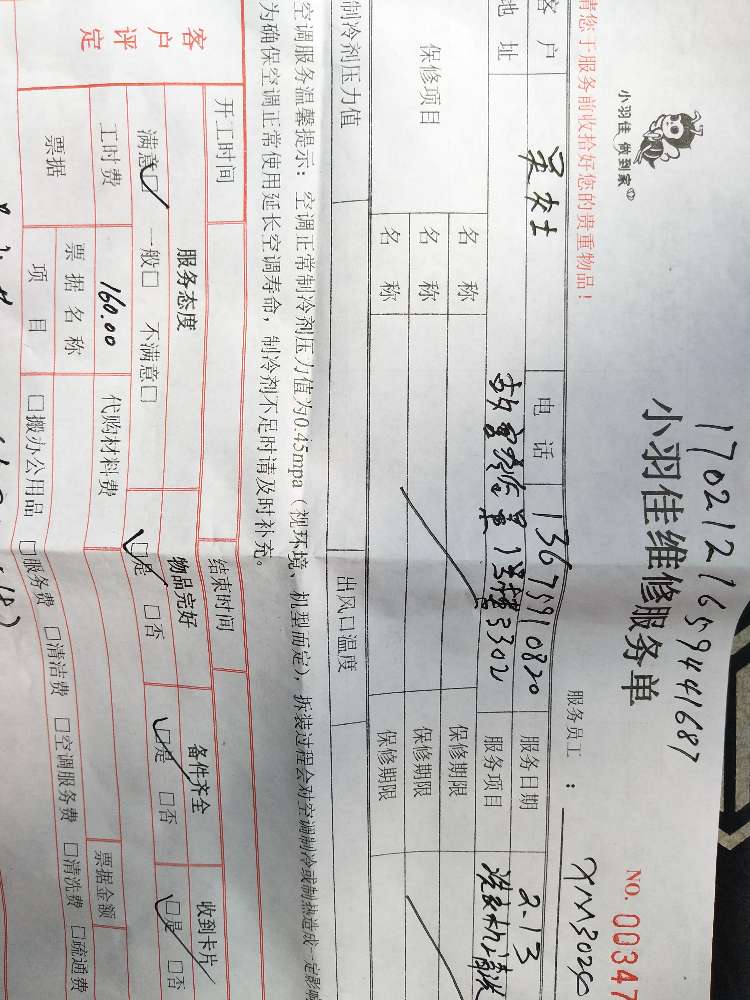 17021216594441687
小羽佳 做到家
小羽佳维修服务单
NO. 00347
请您于服务前收拾好您的贵重物品!
服务员工 : XM3020
客 户 吴女士 电 话 13675910820 服务日期 2.13
地 址 1号楼3302 服务项目 洗衣机清洗
保修项目 名 称 保修期限
名 称 保修期限
名 称 保修期限
制冷剂压力值 出风口温度
空调服务温馨提示: 空调正常制冷剂压力值为0.45mpa (视环境、机型而定), 拆装过程会对空调制冷或制热造成一定影响
为确保空调正常使用延长空调寿命, 制冷剂不足时请及时补充。
开工时间 结束时间
客户评定 服务态度 物品完好 备件齐全 收到卡片
满意☑ 一般□ 不满意□ ☑是 □否 ☑是 □否 ☑是 □否
工时费 160.00 代购材料费
票据 票据名称 票据金额
项 目 □搬办公用品 □服务费 □清洁费 □空调服务费 □清洗费 □疏通费